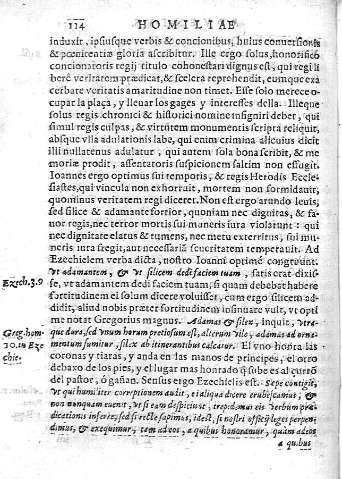 114 HOMILIAE
induxit, ipsiusque verbis & concionibus, huius conuersionis
& pœnitentiæ gloria ascribitur. Ille ergo solus, honorifico
concionatoris regij titulo cohonestari dignus est, qui regi li
berè veritatem prædicat, & scelera reprehendit, eumque exa
cerbare veritatis amaritudine non timet. Esse solo merece o
cupar la plaça, y lleuar los gages y interesses della. Illeque
solus regis chronici & historici nomine insigniri debet, qui
simul regis culpas, & virtutem monumentis scripta reliquit,
absque vlla adulationis labe, qui enim crimina alicuius dicit
illi nullatenus adulatur, qui autem sola bona scribit, & me
moriæ prodit, assentatoris suspicionem saltim non effugit.
Ioannes ergo optimus sui temporis, & regis Herodis Eccle-
siastes, qui vincula non exhorruit, mortem non formidauit,
quominus veritatem regi diceret. Non est ergo arundo leuis,
sed silice & adamante fortior, quoniam nec dignitas, & fa
uor regis, nec terror mortis sui muneris iura violarunt: qui
nec dignitate elatus & tumens, nec metu exterritus, sui mu
neris iura fregit, aut necessariā seueritatem temperauit. Ad
Ezechielem verba dicta, nostro Ioanni optimè congruunt.
Ezech.3.9
Vt adamantem, & vt silicem dedi faciem tuam, satis erat dixis
se, vt adamantem dedi faciem tuam, si quam debebat habere
fortitudinem ei solum dicere voluisset, cum ergo silicem ad
didit, aliud nobis præter fortitudinem insinuare vult, vt opti
me notat Gregorius magnus. Adamas & silex, inquit, vtre-
Greg.hom
que dura, sed vnum horum pretiosum est, alterum vile, adamas ad orna-
10.in Eze
mentum sumitur, silex ab itinerantibus calcatur. El vno honra las
chie.
coronas y tiaras, y anda en las manos de principes, el otro
debaxo de los pies, y el lugar mas honrado q̃ sube es al
del pastor, ò gañan. Sensus ergo Ezechielis est. Sepe contigit,
vt qui humiliter corruptionem audit, et aliqua dicere erubescimus, &
non nunquam euenit, vt si eam despiciunt, trepidamus eis verbum præ
dicationis inferre, sed si recte sapimus, idest, si nostri officij leges perpen-
dimus, & exequimur, tam aduos, a quibus honoramur, quàm aduos
a quibus